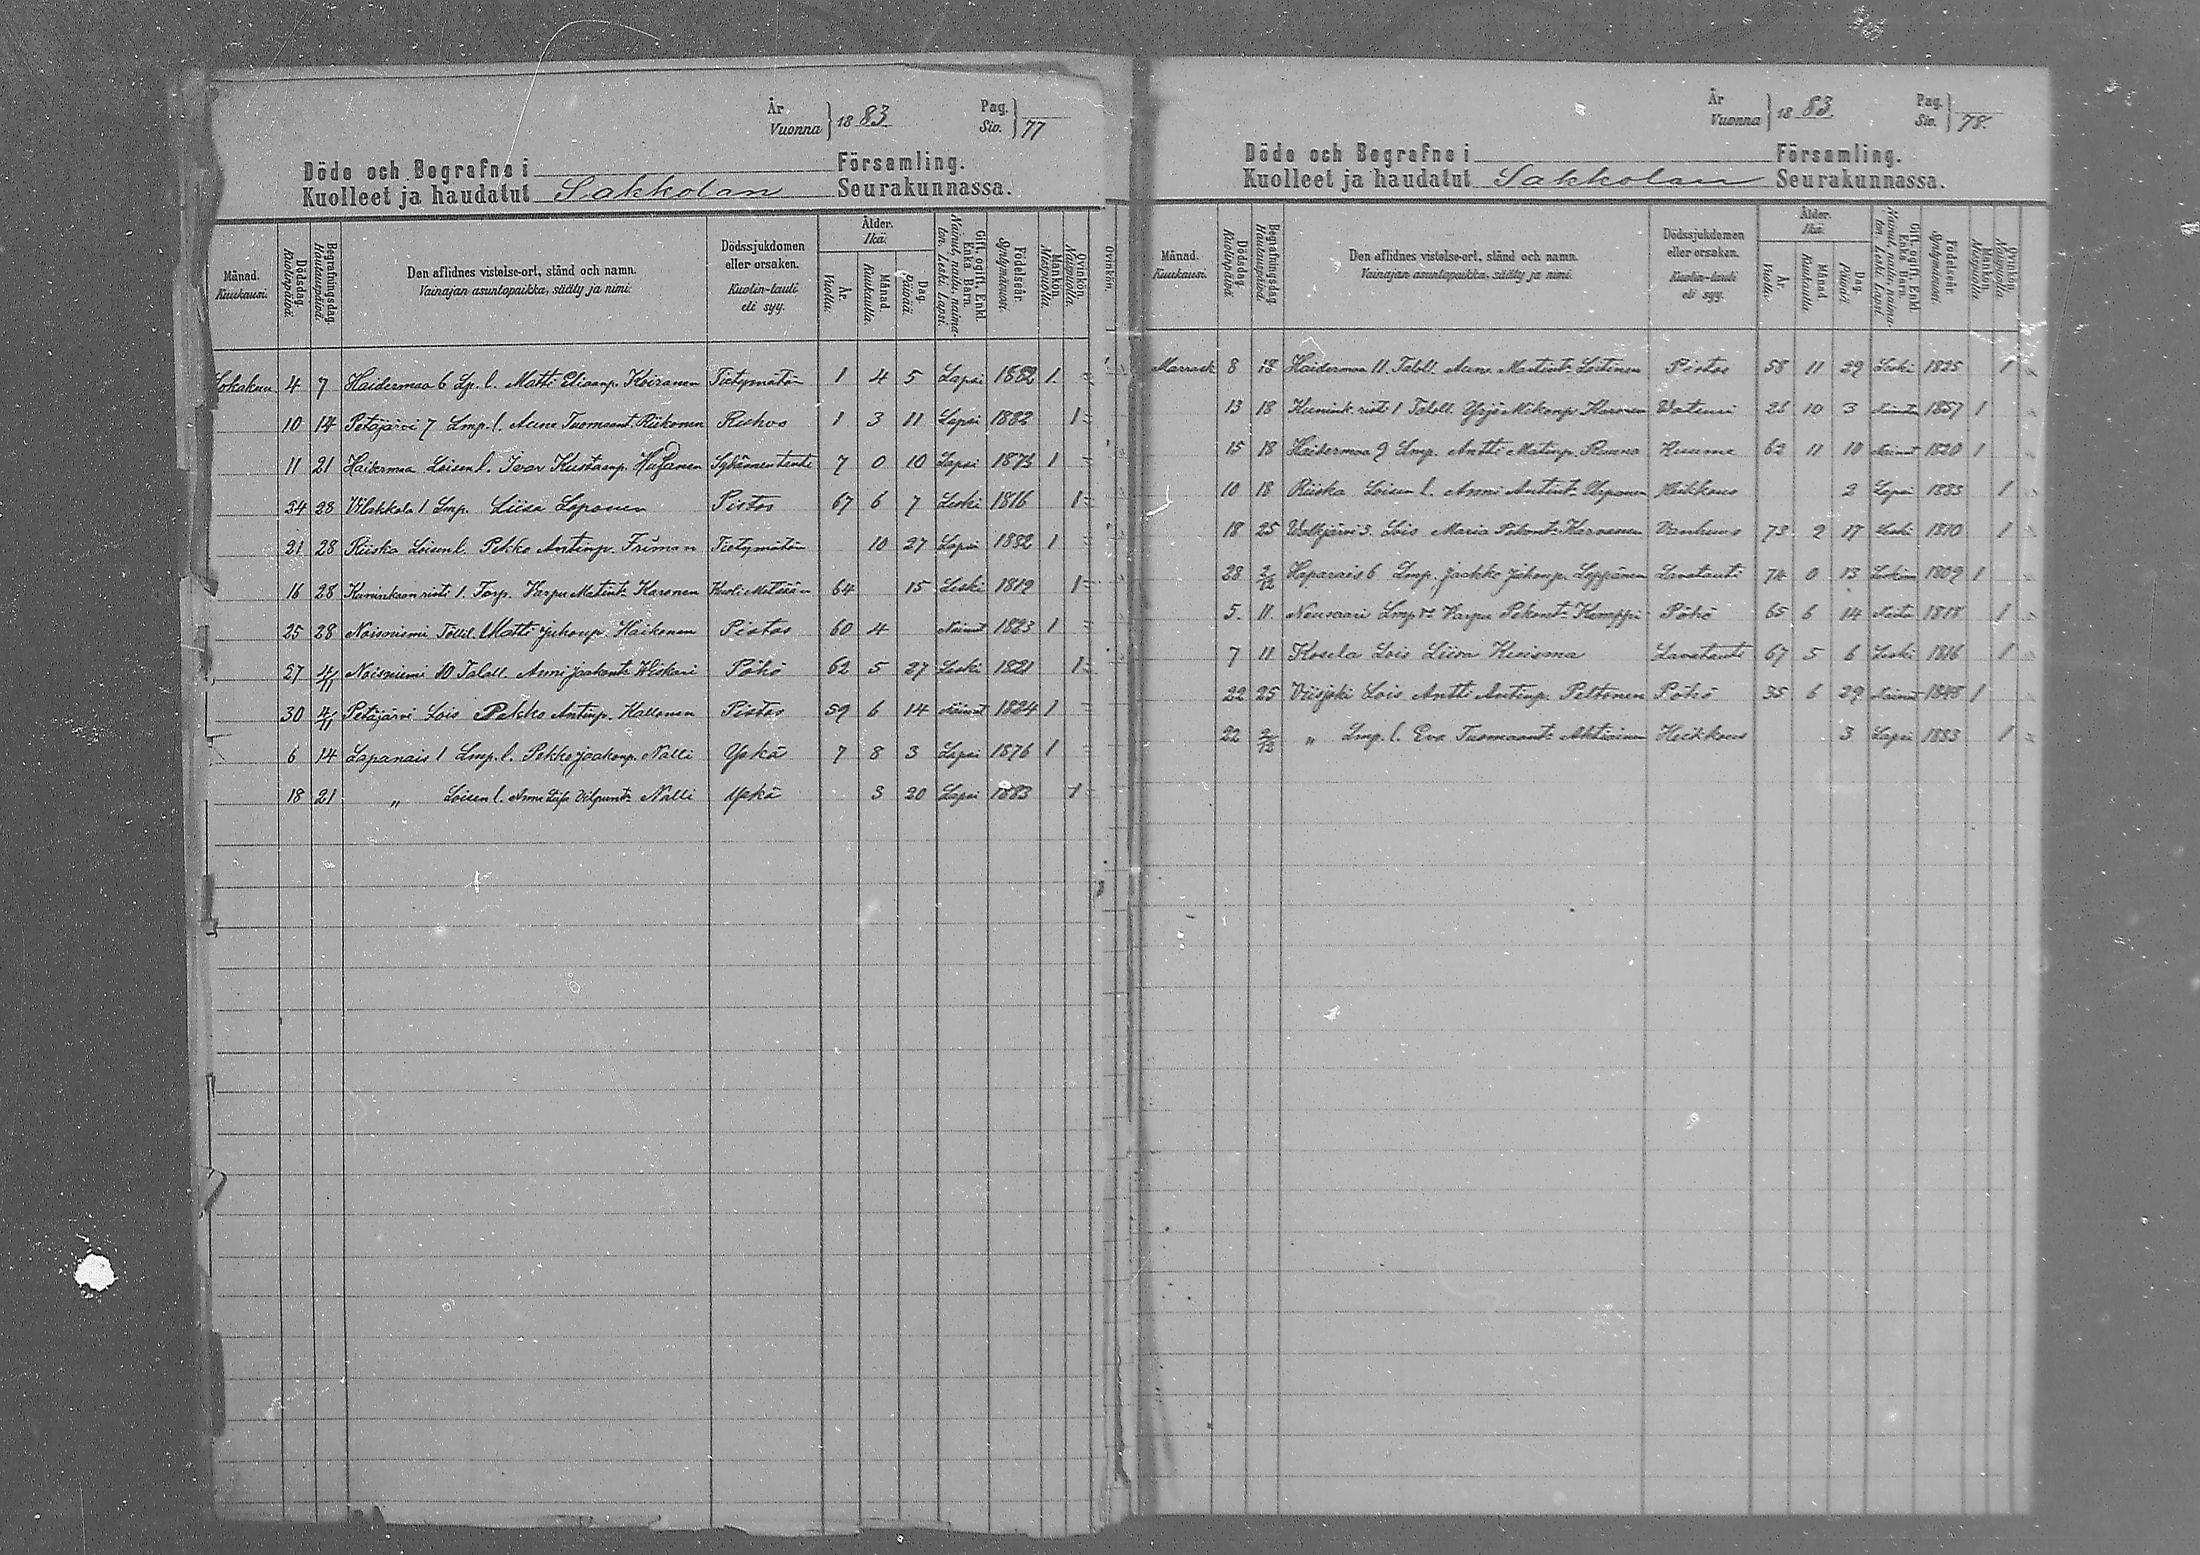 År Vuonna } 1883 Pag. Siv. } 77
Döde och Begrafne i Församling.
Kuolleet ja haudatut Sakkolan Seurakunnassa.
Månad. Kuukausi. Dödsdag. Kuolinpäivä. Begrafningsdag. Hautauspäivä. Den aflidnes vistelse-ort, stånd och namn. Vainajan asuntopaikka, sääty ja nimi. Dödssjukdomen eller orsaken. Kuolin-tauti eli syy. Ålder. Ikä. År. Vuotta. Månad. Kuukautta. Dag. Päivää. Gift, ogift, Enkl. Enka, Barn. Nainut, naitu, naimaton, Leski, Lapsi. Födelseår. Syntymävuosi. Mankön. Miespuolia. Qvinkön. Naispuolia.
Lokakuu 4 7 Haidermaa 6 Lp. l. Matti Eliaanp. Koiranen Tietymätön 1 4 5 Lapsi 1882 1
10 14 Petäjärvi 7 Lmp. l. Aune Tuomaant. Riikonen Ruhos 1 3 11 Lapsi 1882 1
11 21 Haikermaa Loisen l. Ivar Kustaanp. Sydämentauti 7 0 10 Lapsi 1873 1
24 28 Wilakkala 1 Lmp. Liisa Loponen Pistos 67 6 7 Leski 1816 1
21 28 Riiska Loisen l. Pekko Antinp. Friman Tietymätön 10 27 Lapsi 1882 1
16 28 Kuninkaanristi 1. Torp. Varpu Matint. Karonen Kuoli Metsään 64 15 Leski 1819 1
25 28 Noisniemi Tallil. Matti Juhonp. Haikonen Pistos 60 4 Nainut 1823 1
27 4/11 Noisniemi 10 Taloll. Anni Jaakont. Wiskari Pöhö 62 5 27 Leski 1821 1
30 4/11 Petäjärvi Lois Pekko Antinp. Hallonen Pistos 59 6 14 Nainut 1824 1
6 14 Lapanais 1 Lmp. l. Pekko Jaakonp. Nalli Yskä 7 8 3 Lapsi 1876 1
18 21 „ Loisen l. Anna Liisa Vilpunt. Nalli Yskä 3 20 Lapsi 1883 1
År Vuonna } 1883. Pag. Siv. } 78.
Döde och Begrafne i Församling.
Kuolleet ja haudatut Sakkolan Seurakunnassa.
Månad. Kuukausi. Dödsdag. Kuolinpäivä. Begrafningsdag. Hautauspäivä. Den aflidnes vistelse-ort, stånd och namn. Vainajan asuntopaikka, sääty ja nimi. Dödssjukdomen eller orsaken. Kuolin-tauti eli syy. Ålder. Ikä. År. Vuotta. Månad. Kuukautta. Dag. Päivää. Gift, ogift, Enkl. Enka, Barn. Nainut, naitu, naimaton, Leski, Lapsi. Födelseår. Syntymävuosi. Mankön. Miespuolia. Qvinkön. Naispuolia.
Marrask 8 18 Haidermaa 11. Taloll. Anna Martint. Loitinen Pistos 58 11 29 Leski 1825 1
13 18 Kunink. risti 1 Taloll. Yrjö Mikonp. Karonen Watsuri 26 10 3 1857 1
15 18 Haidermaa 9 Lmp. Antti Matinp. Ruuna Kuume 62 11 10 Nainut 1820 1
10 18 Riiska Loisen l. Anni Antint. Heikkous 2 Lapsi 1883 1
18 25 Walkjärvi 3. Lois Maria Pekont. Karvanen Vanhuus 73 2 17 Leski 1810 1
28 2/12 Haparais 6 Lmp. Jaakko Juhonp. Leppänen Lavatauti 74 0 13 Leskim 1809 1
5. 11. Nousaari Lmp. Varpu Pekont. Kemppi Pöhö 65 6 14 1818 1
7 11 Kosela Lois Liisa Kuisma Lavatauti 67 5 6 Leski 1816 1
22 25 Viisjoki Lois Antti Antinp. Peltonen Pöhö 35 6 29 Nainut 1848 1
22 2/12 „ Lmp. l. Eva Tuomaant. Ahtiainen Heikkous 3 Lapsi 1883 1